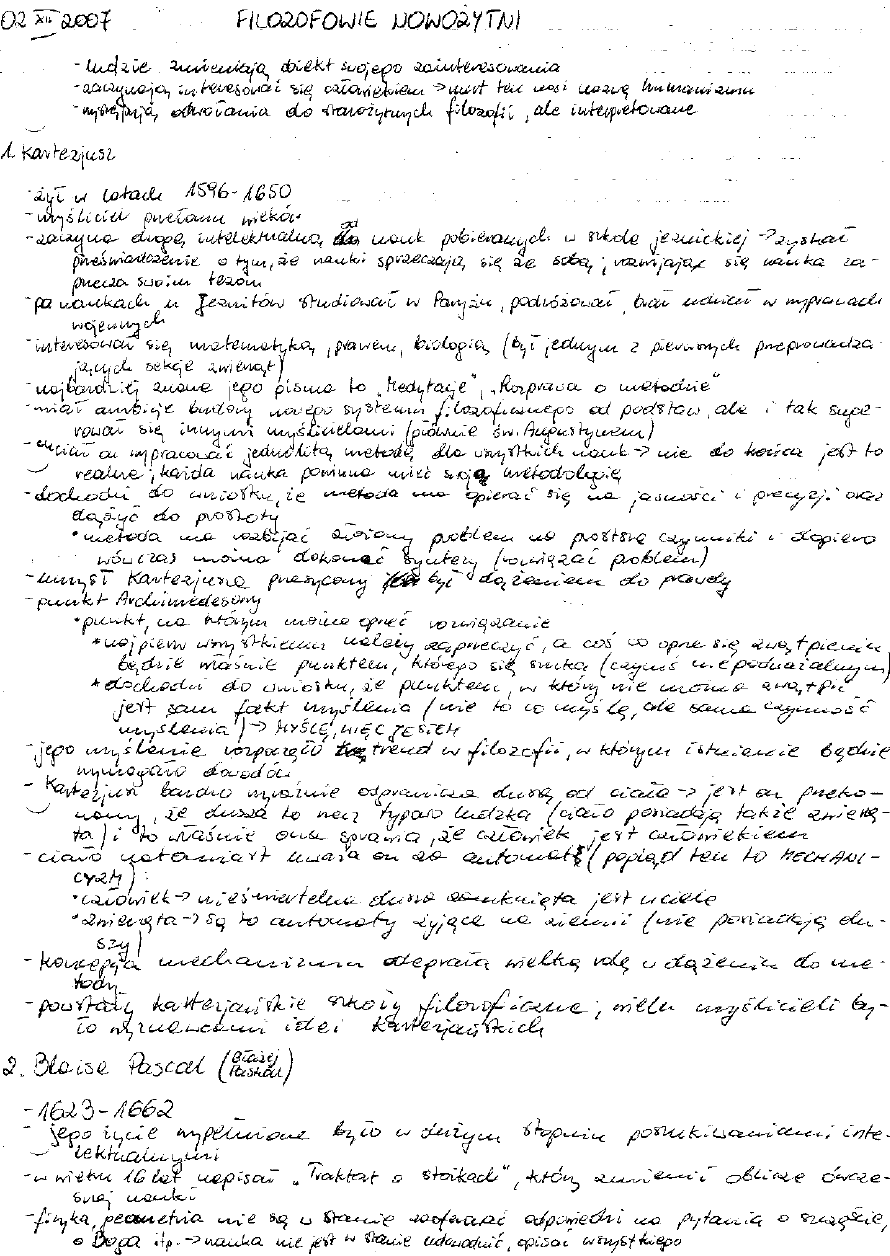 02 XII 2007 FILOZOFOWIE NOWOŻYTNI
- ludzie zmieniają obiekt swojego zainteresowania
- zaczynają interesować się człowiekiem → nurt ten nosi nazwę humanizmu
- występują odwołania do starożytnych filozofii, ale interpretowane
1. Kartezjusz
- żył w latach 1596-1650
- myśliciel przełomu wieków
- zaczyna drogę intelektualną od nauk pobieranych w szkole jezuickiej → zyskał
przeświadczenie o tym, że nauki sprzeczają się ze sobą; rozwijając się nauka za-
przecza swoim tezom
- po naukach u Jezuitów studiował w Paryżu, podróżował, brał udział w wyprawach
wojennych
- interesował się matematyką, prawem, biologią (był jednym z pierwszych przeprowadza-
jących sekcje zwierząt)
- najbardziej znane jego pisma to „Medytacje", „Rozprawa o metodzie"
- miał ambicje budowy nowego systemu filozoficznego od podstaw, ale i tak suge-
rował się innymi myślicielami (głównie św. Augustynem)
- chciał on wypracować jednolitą metodę dla wszystkich nauk → nie do końca jest to
realne; każda nauka powinna mieć swoją metodologię
- dochodzi do wniosku, że metoda ma opierać się na jasności i precyzji oraz
dążyć do prostoty
• metoda ma rozbijać złożony problem na prostsze czynniki i dopiero
wówczas można dokonać syntezy (rozwiązać problem)
- umysł Kartezjusza przesycony był dążeniem do prawdy
- punkt Archimedesowy
• punkt, na którym można oprzeć rozwiązanie
• najpierw wszystkiemu należy zaprzeczyć, a coś co oprze się zwątpieniu
będzie właśnie punktem, którego się szuka (czymś niepodważalnym)
• dochodzi do wniosku, że punktem, w który nie można zwątpić
jest sam fakt myślenia (nie to co myślę, ale sama czynność
myślenia) → MYŚLĘ, WIĘC JESTEM
- jego myślenie rozpoczęło trend w filozofii, w którym istnienie będzie
wymagało dowodów
- Kartezjusz bardzo wyraźnie odgranicza duszę od ciała → jest on przeko-
nany, że dusza to rzecz typowo ludzka (ciało posiadają także zwierzę-
ta) i to właśnie ona sprawia, że człowiek jest człowiekiem
- ciało natomiast uważa on za automat (pogląd ten to MECHANI-
CYZM):
• człowiek → nieśmiertelna dusza zamknięta jest w ciele
• zwierzęta → są to automaty żyjące na ziemi (nie posiadają du-
szy)
- koncepcja mechanizmu odegrała wielką rolę w dążeniu do me-
tody
- powstały kartezjańskie szkoły filozoficzne; wielu myślicieli by-
ło wyznawcami idei kartezjańskich
2. Blaise Pascal (Błażej Paskal)
- 1623-1662
- jego życie wypełnione było w dużym stopniu poszukiwaniami inte-
lektualnymi
- w wieku 16 lat napisał „Traktat o stożkach", który zmienił oblicze ówcze-
snej nauki
- fizyka, geometria nie są w stanie zaoferować odpowiedzi na pytania o szczęście,
o Boga itp. → nauka nie jest w stanie udowodnić, opisać wszystkiego